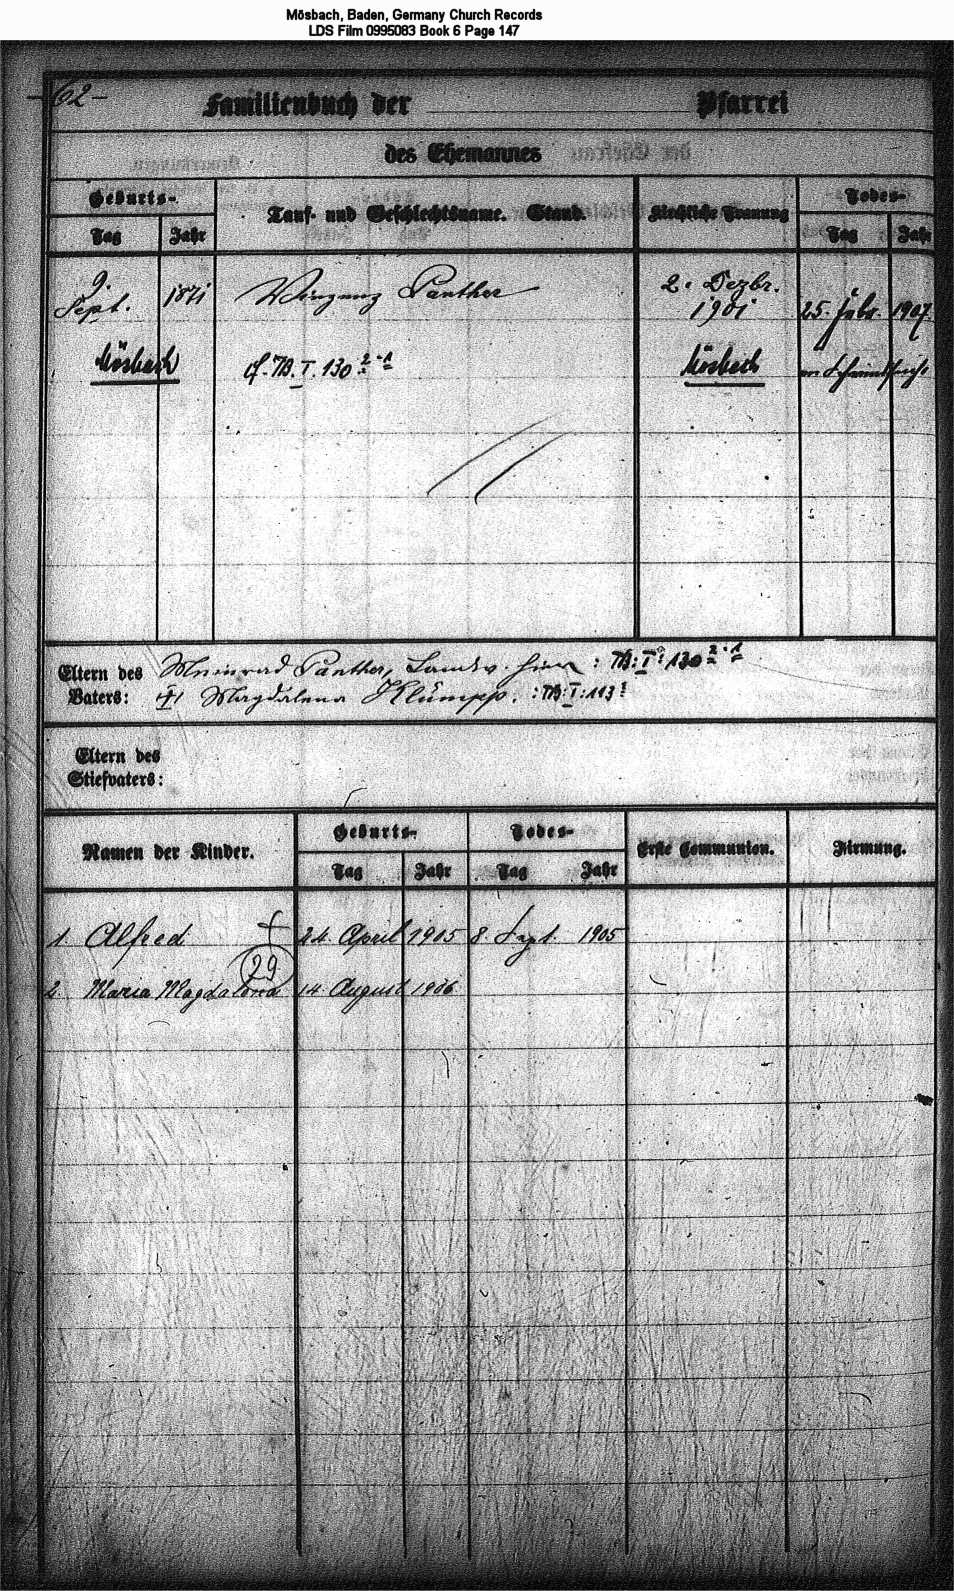 Mösbach, Baden, Germany Church Records
LDS Film 0995083 Book 6 Page 147
-62-
Familienbuch der Pfarrei
des Ehemannes
Geburts-
Tauf- und Geschlechtsname. Stand.
Kirchliche Trauung
Todes-
Tag Jahr
Tag Jahr
9. Sept. 1871
Panther
2. Dezbr. 1901
25. Febr. 1907.
Mösbach
cf. FB. I. 130
Mösbach
Eltern des Vaters:
Meinrad Panther, Landw. hier : FB: I: 130 2.1
Magdalena Klumpp. : FB: I: 113
Eltern des Stiefvaters:
Namen der Kinder.
Geburts-
Todes-
Erste Communion.
Firmung.
Tag Jahr
Tag Jahr
1. Alfred † 24. April 1905 8. Sept. 1905
29
2. Maria Magdalena 14. August 1906